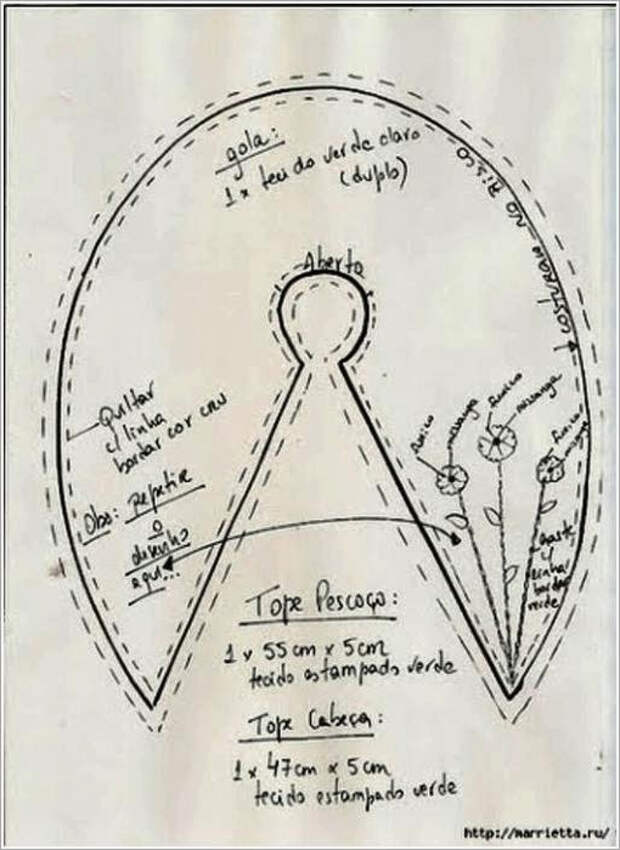 gola:
1 x tecido verde claro
(duplo)
COSTURAR NO RISCO
Aberto
Quiltar
c/ linha
bordar cor cru
Obs: Repetir
o
desenho
aqui...
fuxico
missanga
fuxico
missanga
fuxico
haste
c/
linha
bordar
verde
Tope Pescoço:
1 x 55 cm x 5 cm
tecido estampado verde
Tope Cabeça:
1 x 47 cm x 5 cm
tecido estampado verde
http://marrietta.ru/